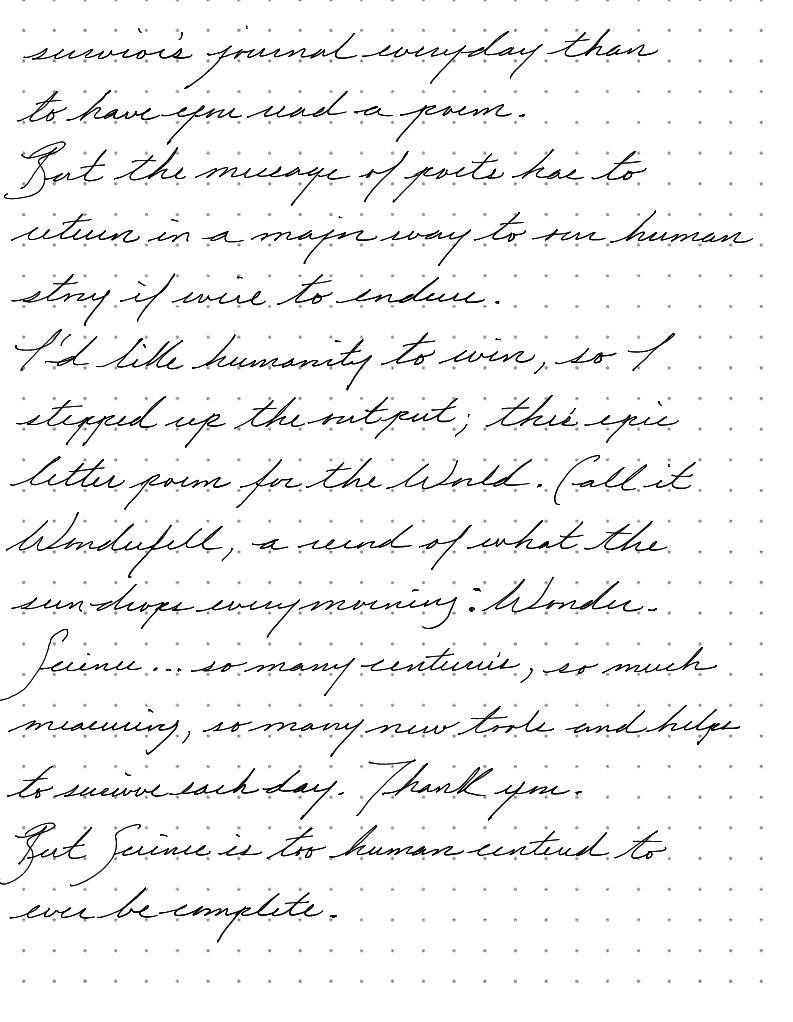 survivor's journal everyday than
to have you read a poem.
But the message of poets has to
return in a major way to our human
story if we're to endure.
I'd like humanity to win, so I
stepped up the output; this epic
letter poem for the World. Call it
Wonderfell, a record of what the
sun drops every morning: Wonder.
Science... so many centuries, so much
measuring, so many new tools and helps
to survive each day. Thank you.
But Science is too human centered to
ever be complete.